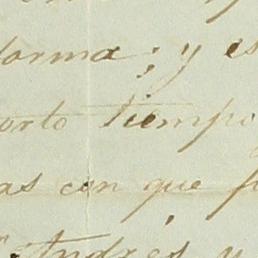 forma; y es
corto tiempo
as con que f
Andrés y